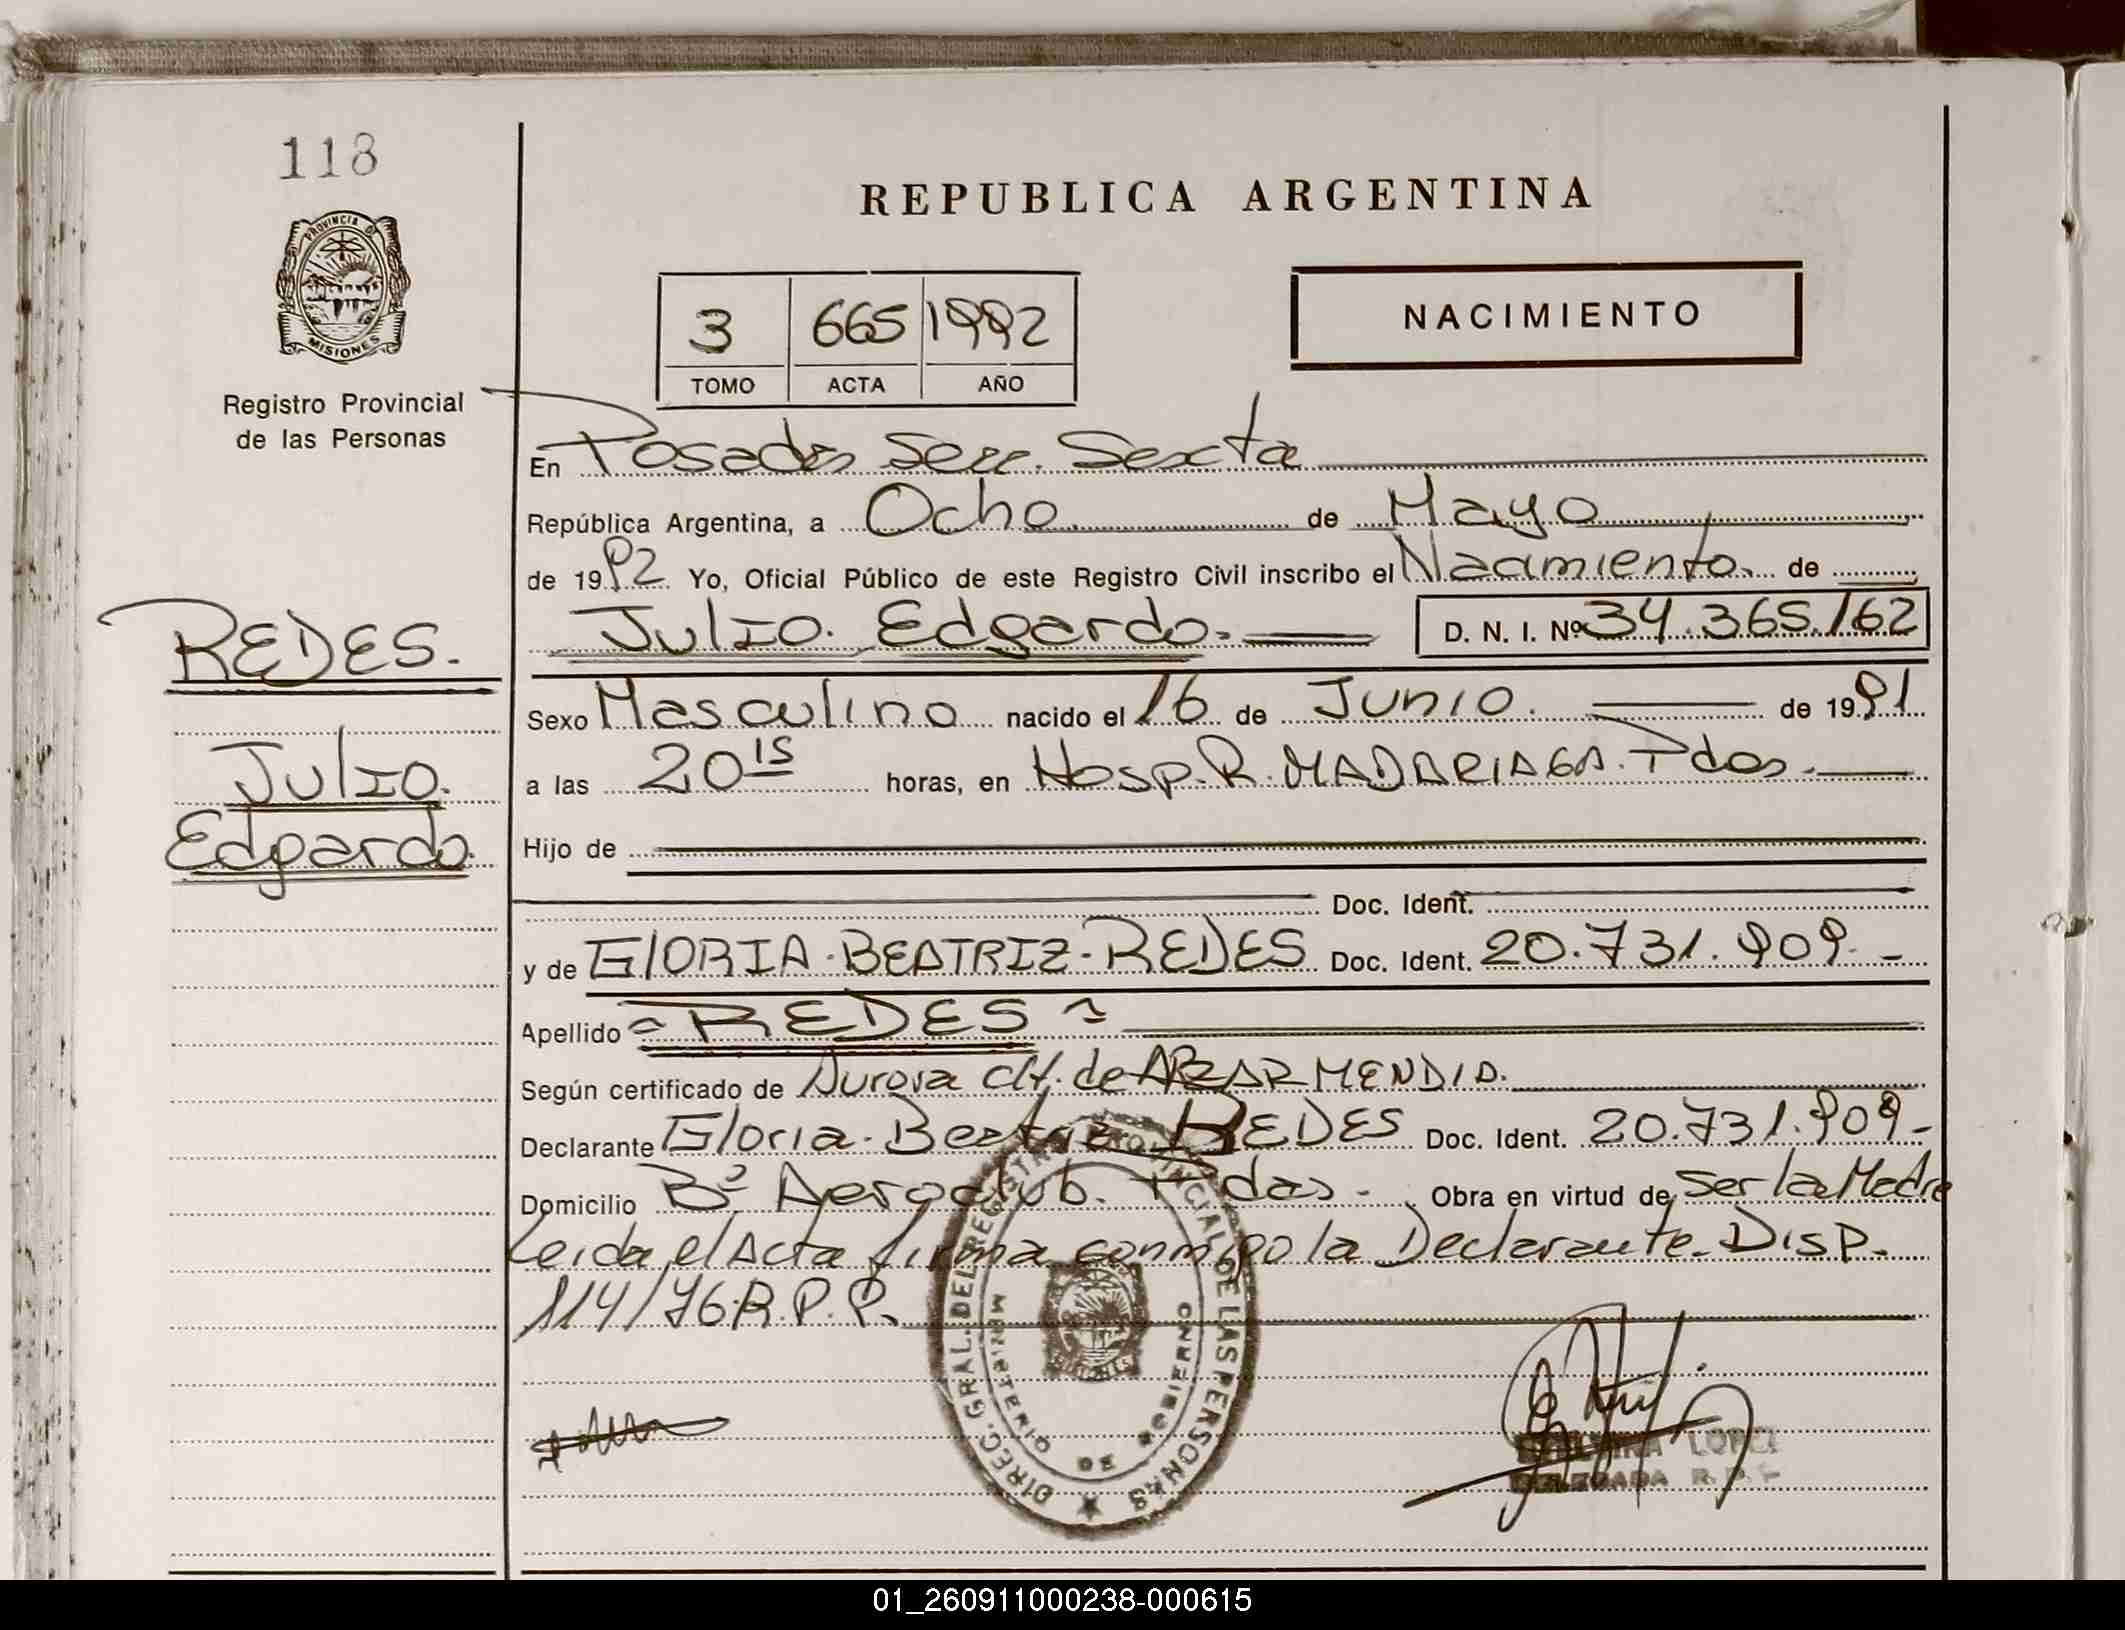 118
PROVINCIA D
MISIONES
Registro Provincial
de las Personas
REPUBLICA ARGENTINA
3 665 1992
TOMO ACTA AÑO
NACIMIENTO
En Posadas Secc. Sexta
República Argentina, a Ocho de Mayo
de 1992 Yo, Oficial Público de este Registro Civil inscribo el Nacimiento. de
Julio. Edgardo.= D. N. I. Nº 34.365.162
REDES.
Julio.
Edgardo.
Sexo Masculino nacido el 16 de Junio. de 1991
a las 20 15 horas, en Hosp. R. MADARIAGA. Pdas.
Hijo de
Doc. Ident.
y de GlORIA-BEATRIZ-REDES Doc. Ident. 20.731.909.-
Apellido = REDES =
Según certificado de Aurora de ARZARMENDIA.
Declarante Gloria-Beatriz REDES Doc. Ident. 20.731.909-
Domicilio Bº Aeroclub. Pdas. Obra en virtud de ser la Madre
Leida el Acta firma conmigo la Declarante. Disp.
114/76.R.P.P.
DIREC. GRAL. DEL REGISTRO PROVINCIAL DE LAS PERSONAS
MINISTERIO DE GOBIERNO
MISIONES
LOPEZ
DELEGADA R.P.P.
01_260911000238-000615